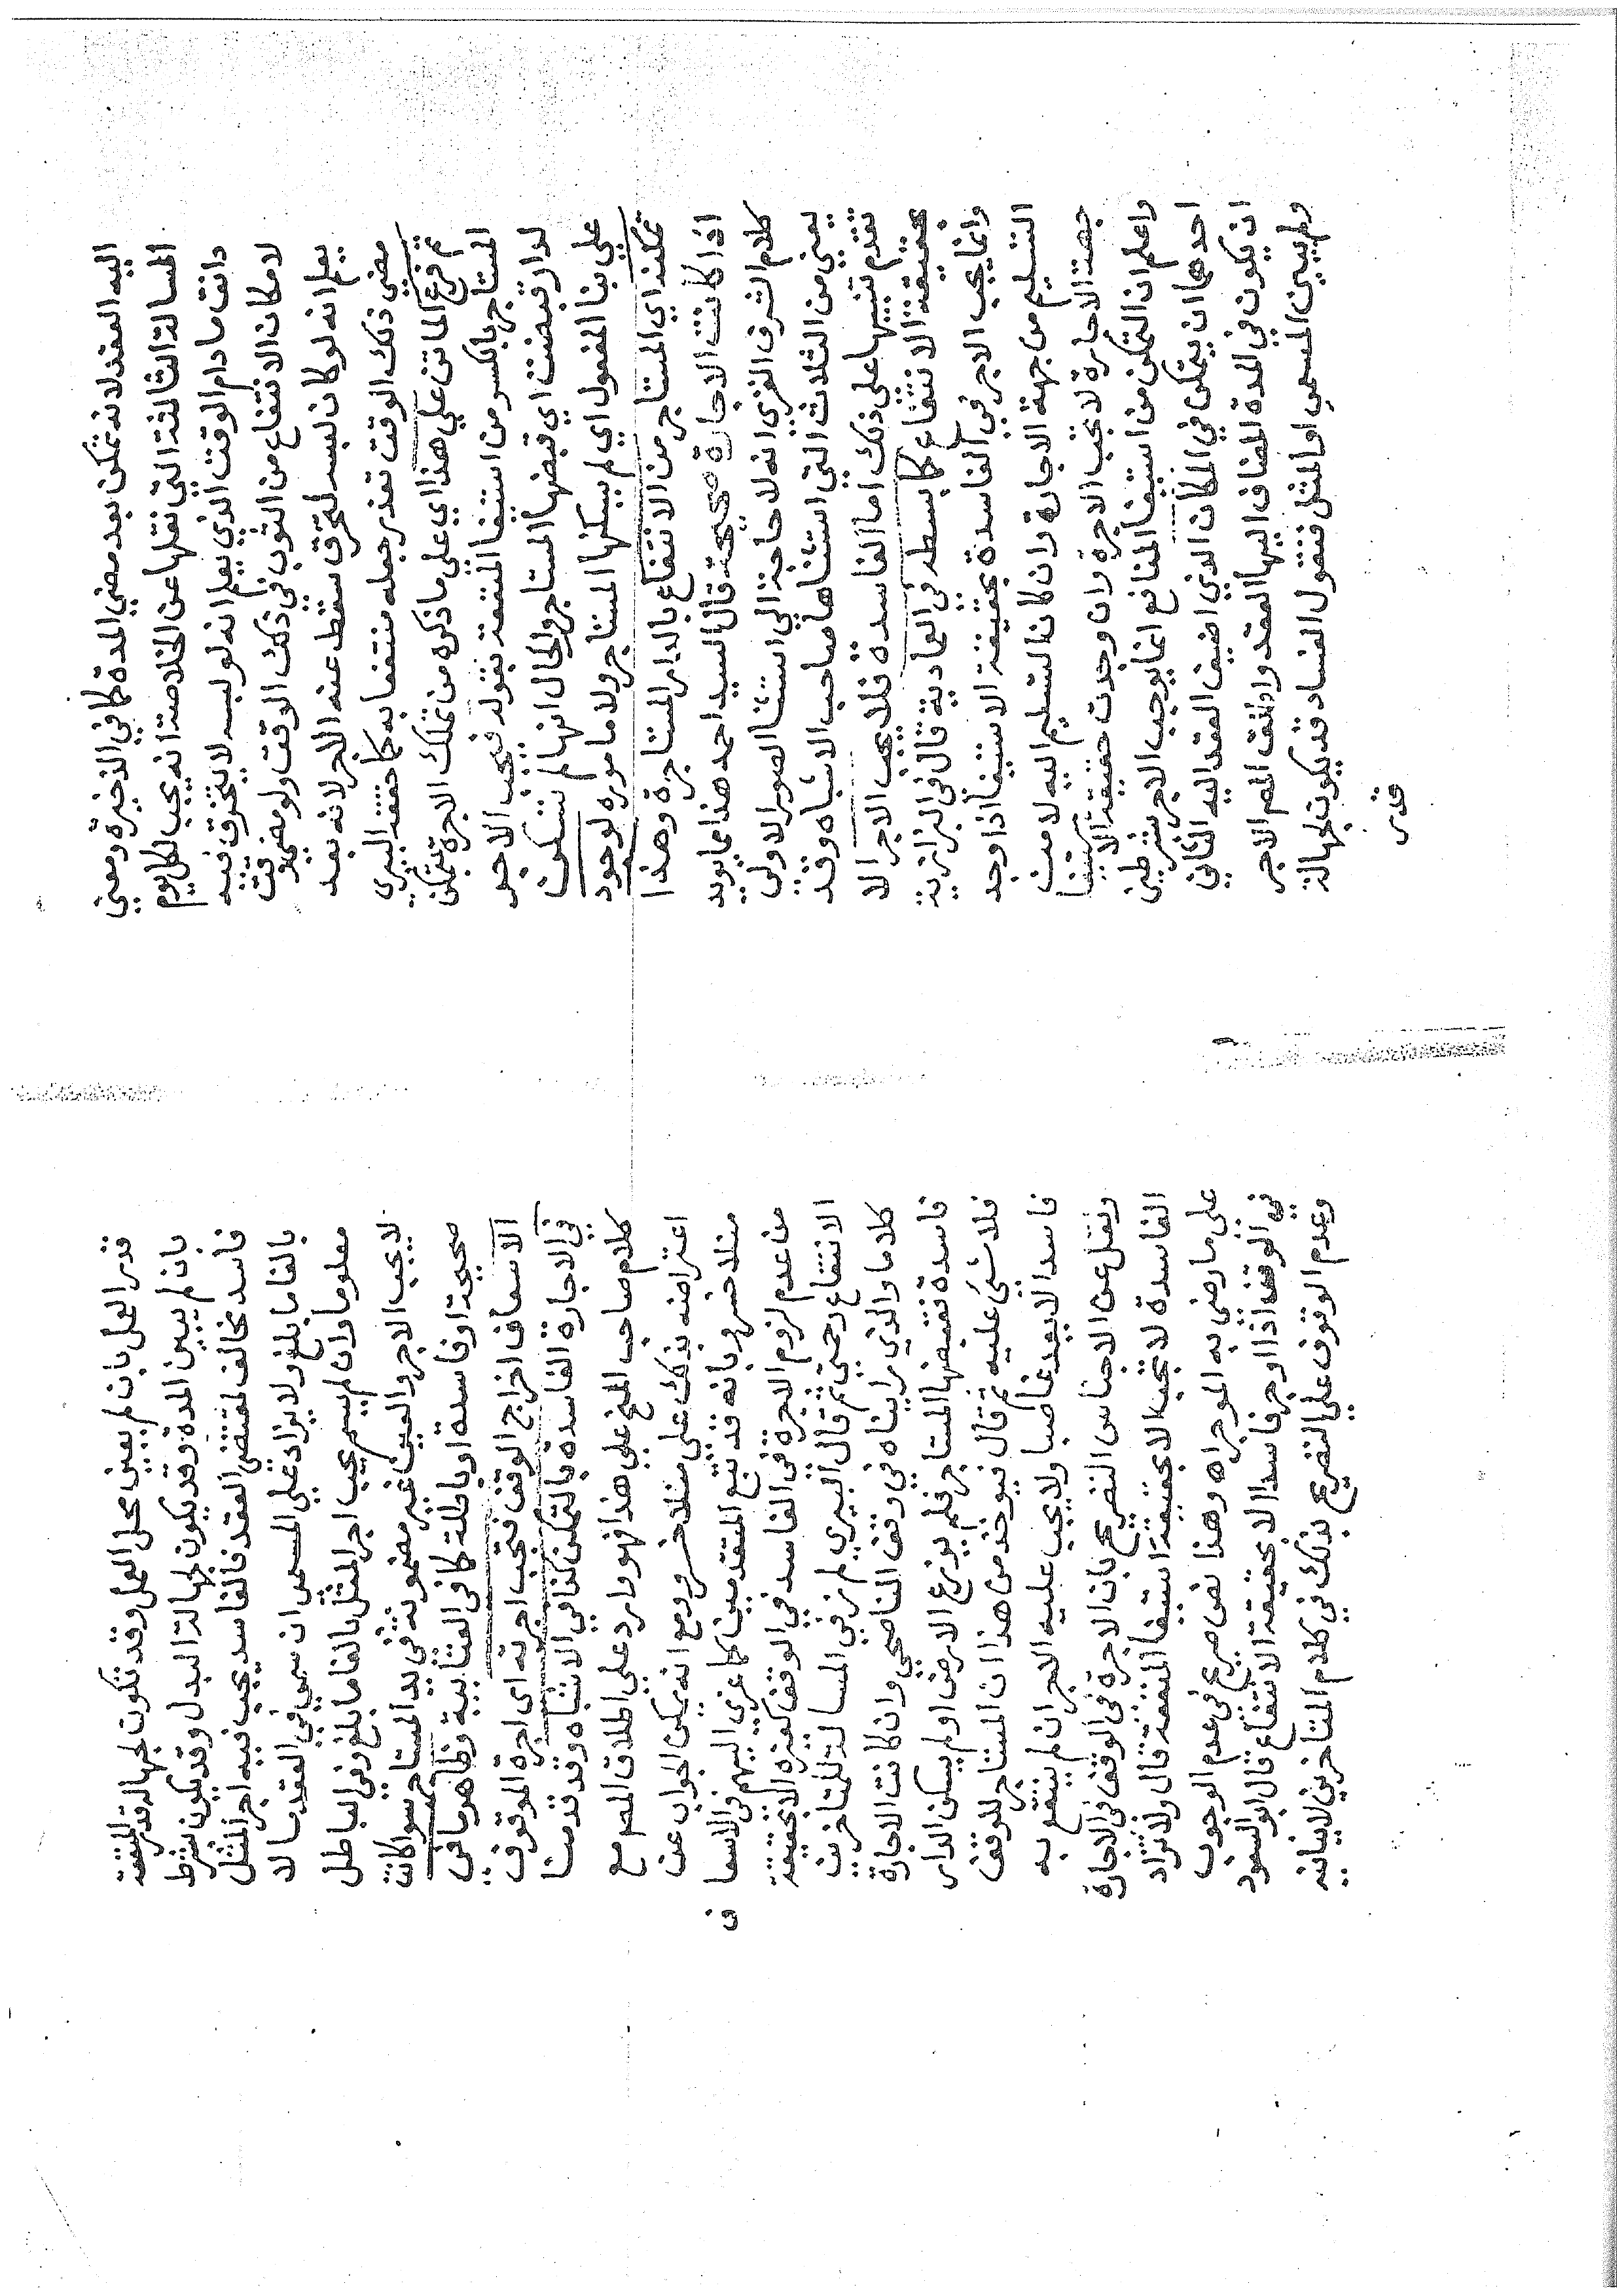 اليه العقد لانه تمكن بعد مضي المدة كما في الذخيرة ومعني
المسالة الثالثة التي نقلها عن الخلاصة انه يجب لكل يوم
دانق ما دام الوقت الذي يعلم انه لو لبسه لا يتخرق فيه
لا مكان الانتفاع من الثوب في ذلك الوقت ولو مضي وقت
يعلم انه لو كان لبسه لتخرق سقط عنه الاجر لانه بعد
مضي ذلك الوقت تعذر جعله منتفعا به كما حققه البيري
ثم فرع الماتن علي هذا اي علي ما ذكره من تملك الاجرة بتمكن
المستاجر بالكسر من استيفا المنفعة بقوله فيجب الاجر
لدار قبضت اي قبضها المستاجر والحال انها لم تسكن
علي بنا المفعول اي لم يسكنها المستاجر ولا ماموره لوجود
تمكنه اي المستاجر من الانتفاع بالدار المستاجرة وهذا
اذا كانت الاجارة صحيحة قال السيد احمد هذا مما يويد
كلام الشرف الغزي انه لا حاجة الي استثنا الصور الاولي
يعني من الثلاث التي استثناها صاحب الاشباه وقد
تقدم تنبيها علي ذلك اما الفاسدة فلا يجب الاجر الا
بحقيقة الانتفاع كما بسطه في العمادية قال في البزازية
وانما يجب الاجر في الفاسدة بحقيقة الاستيفا اذا وجد
التسليم من جهة الاجارة وان كان التسليم اليه لا من
جهة الاجارة لا تجب الاجرة وان وجدت حقيقة الاستيفا
واعلم ان التمكن من استيفا المنافع انما يوجب الاجر بشرطين
احدهما ان يتمكن في المكان الذي اضيف العقد اليه الثاني
ان يكون في المدة المضاف اليها العقد واطلق المص الاجر
ولم يبين المسمي او المثل فنقول الفساد قد يكون لجهالة
قدر
قدر العمل بان لم يعين محل العمل وقد تكون لجهالة قدر المنفعة
بان لم يبين المدة وقد يكون لجهالة البدل وقد يكون بشرط
فاسد مخالف لمقتضي العقد فالفاسد يجب فيه اجر المثل
بالغا ما بلغ ولا يزاد علي المسمي ان سمي في العقد مالا
معلوما وان لم يسم يجب اجر المثل بالغا ما بلغ وفي الباطل
لا يجب الاجر والعين غير مضمونة في يد المستاجر سوا كانت
صحيحة او فاسدة او باطلة كما في العتابية وظاهر ما في
الاسعاف اخراج الوقف فتجب اجرته اي اجرة الموقوف
في الاجارة الفاسدة بالتمكن كذا في الاشباه وقد قدمنا
كلام صاحب المنح علي هذا فهو وارد علي اطلاق المص مع
اعتراضه بذلك علي منلا خسرو ومع انه يمكن الجواب عن
منلا خسرو بانه قد تبع المتقدمين كما عزي اليهم في الاسعاف
من عدم لزوم الاجرة في الفاسد في الوقف كغيره الا بحقيقة
الانتفاع رحمتي ثم قال البيري لم نر في المسالة للمتاخرين
كلاما والذي رايناه في وقف الناصحي وان كانت الاجارة
فاسدة تقبضها المستاجر فلم يزرع الارض او لم يسكن الدار
فلا شيء عليه ثم قال فيوخذ من هذا ان المستاجر للوقف
فاسدا لا يعد غاصبا ولا يجب عليه الاجر ان لم ينتفع به
ونقل عن الاجناس التصريح بان الاجرة في الوقف في الاجارة
الفاسدة لا تجب الا بحقيقة استيفا المنفعة قال ولا تزاد
علي ما رضي به الموجر اه وهذا نص صريح في عدم الوجوب
في الوقف اذا اوجر فاسدا الا بحقيقة الانتفاع قال ابو السعود
وعدم الوقوف علي التصريح بذلك في كلام المتاخرين لا ينافيه